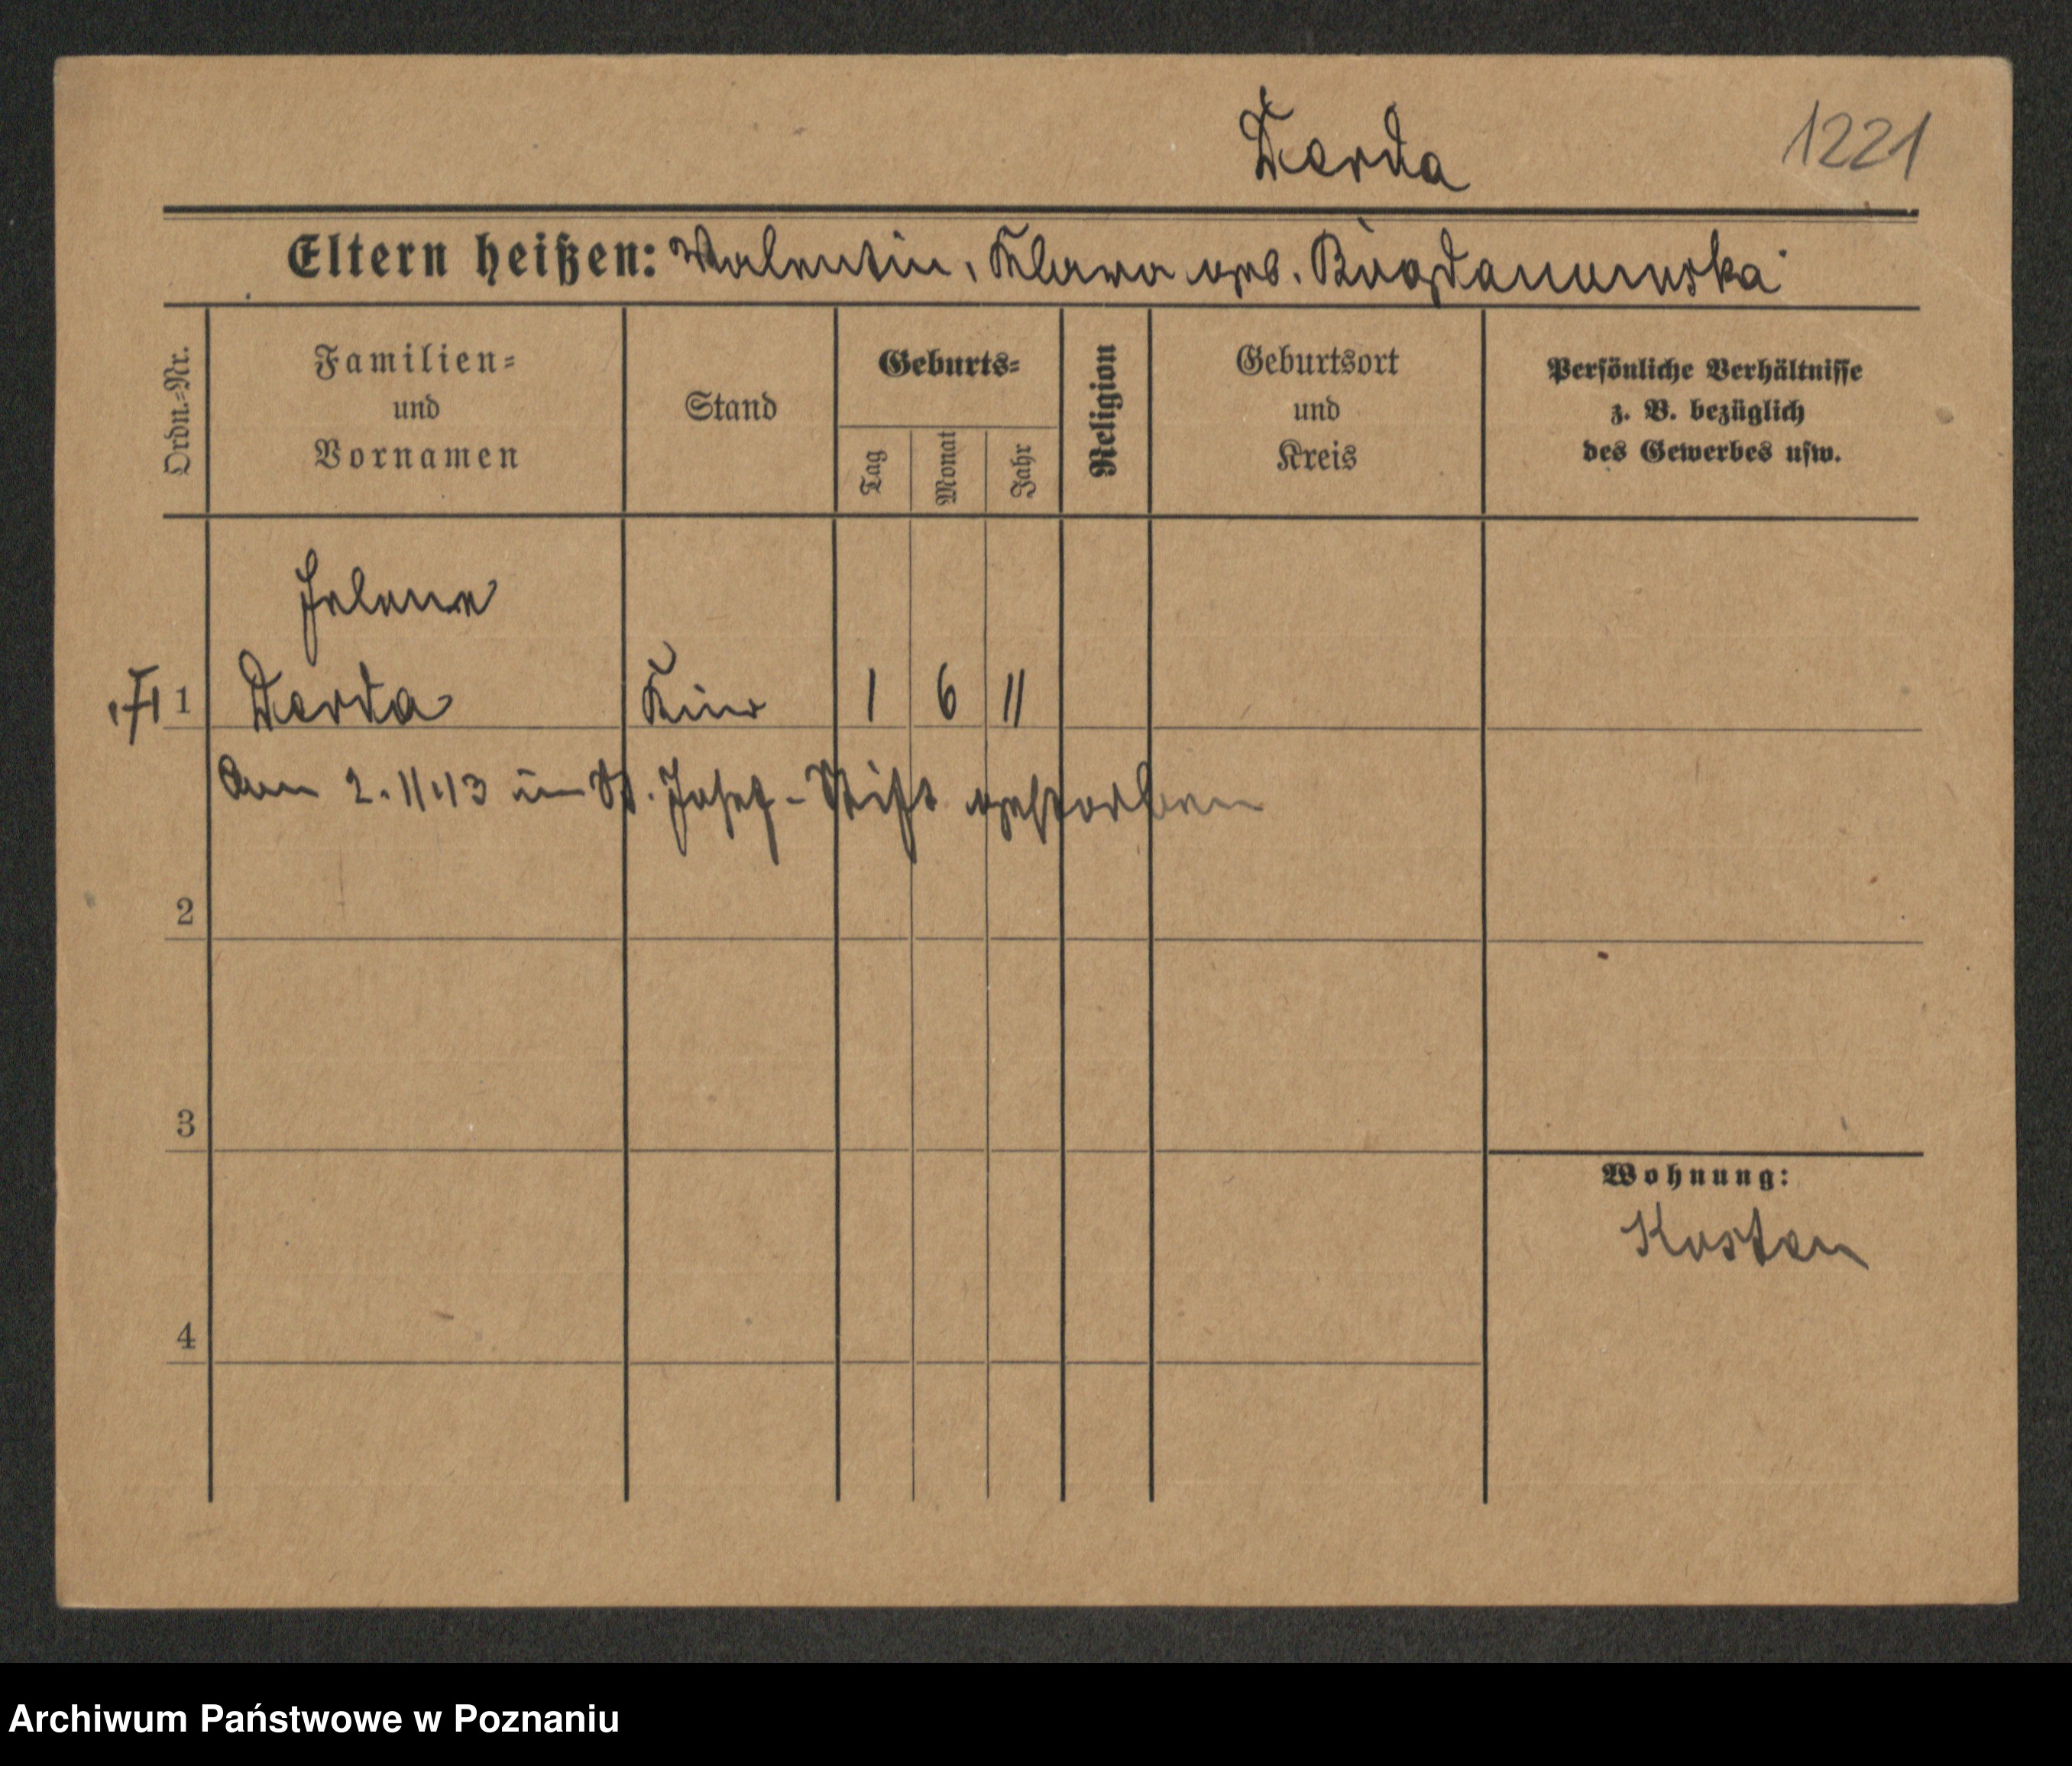 Derda
1221
Eltern heißen: Valentin, Klara geb. Bogdanowska
Ordn.-Nr.
Familien-
und
Vornamen
Stand
Geburts-
Tag
Monat
Jahr
Religion
Geburtsort
und
Kreis
Persönliche Verhältnisse
z. B. bezüglich
des Gewerbes usw.
Helene
1 Derda Kind 1 6 11
Am 2.11.13 im St. Josef-Stift gestorben
2
3
Wohnung:
Kosten
4
Archiwum Państwowe w Poznaniu